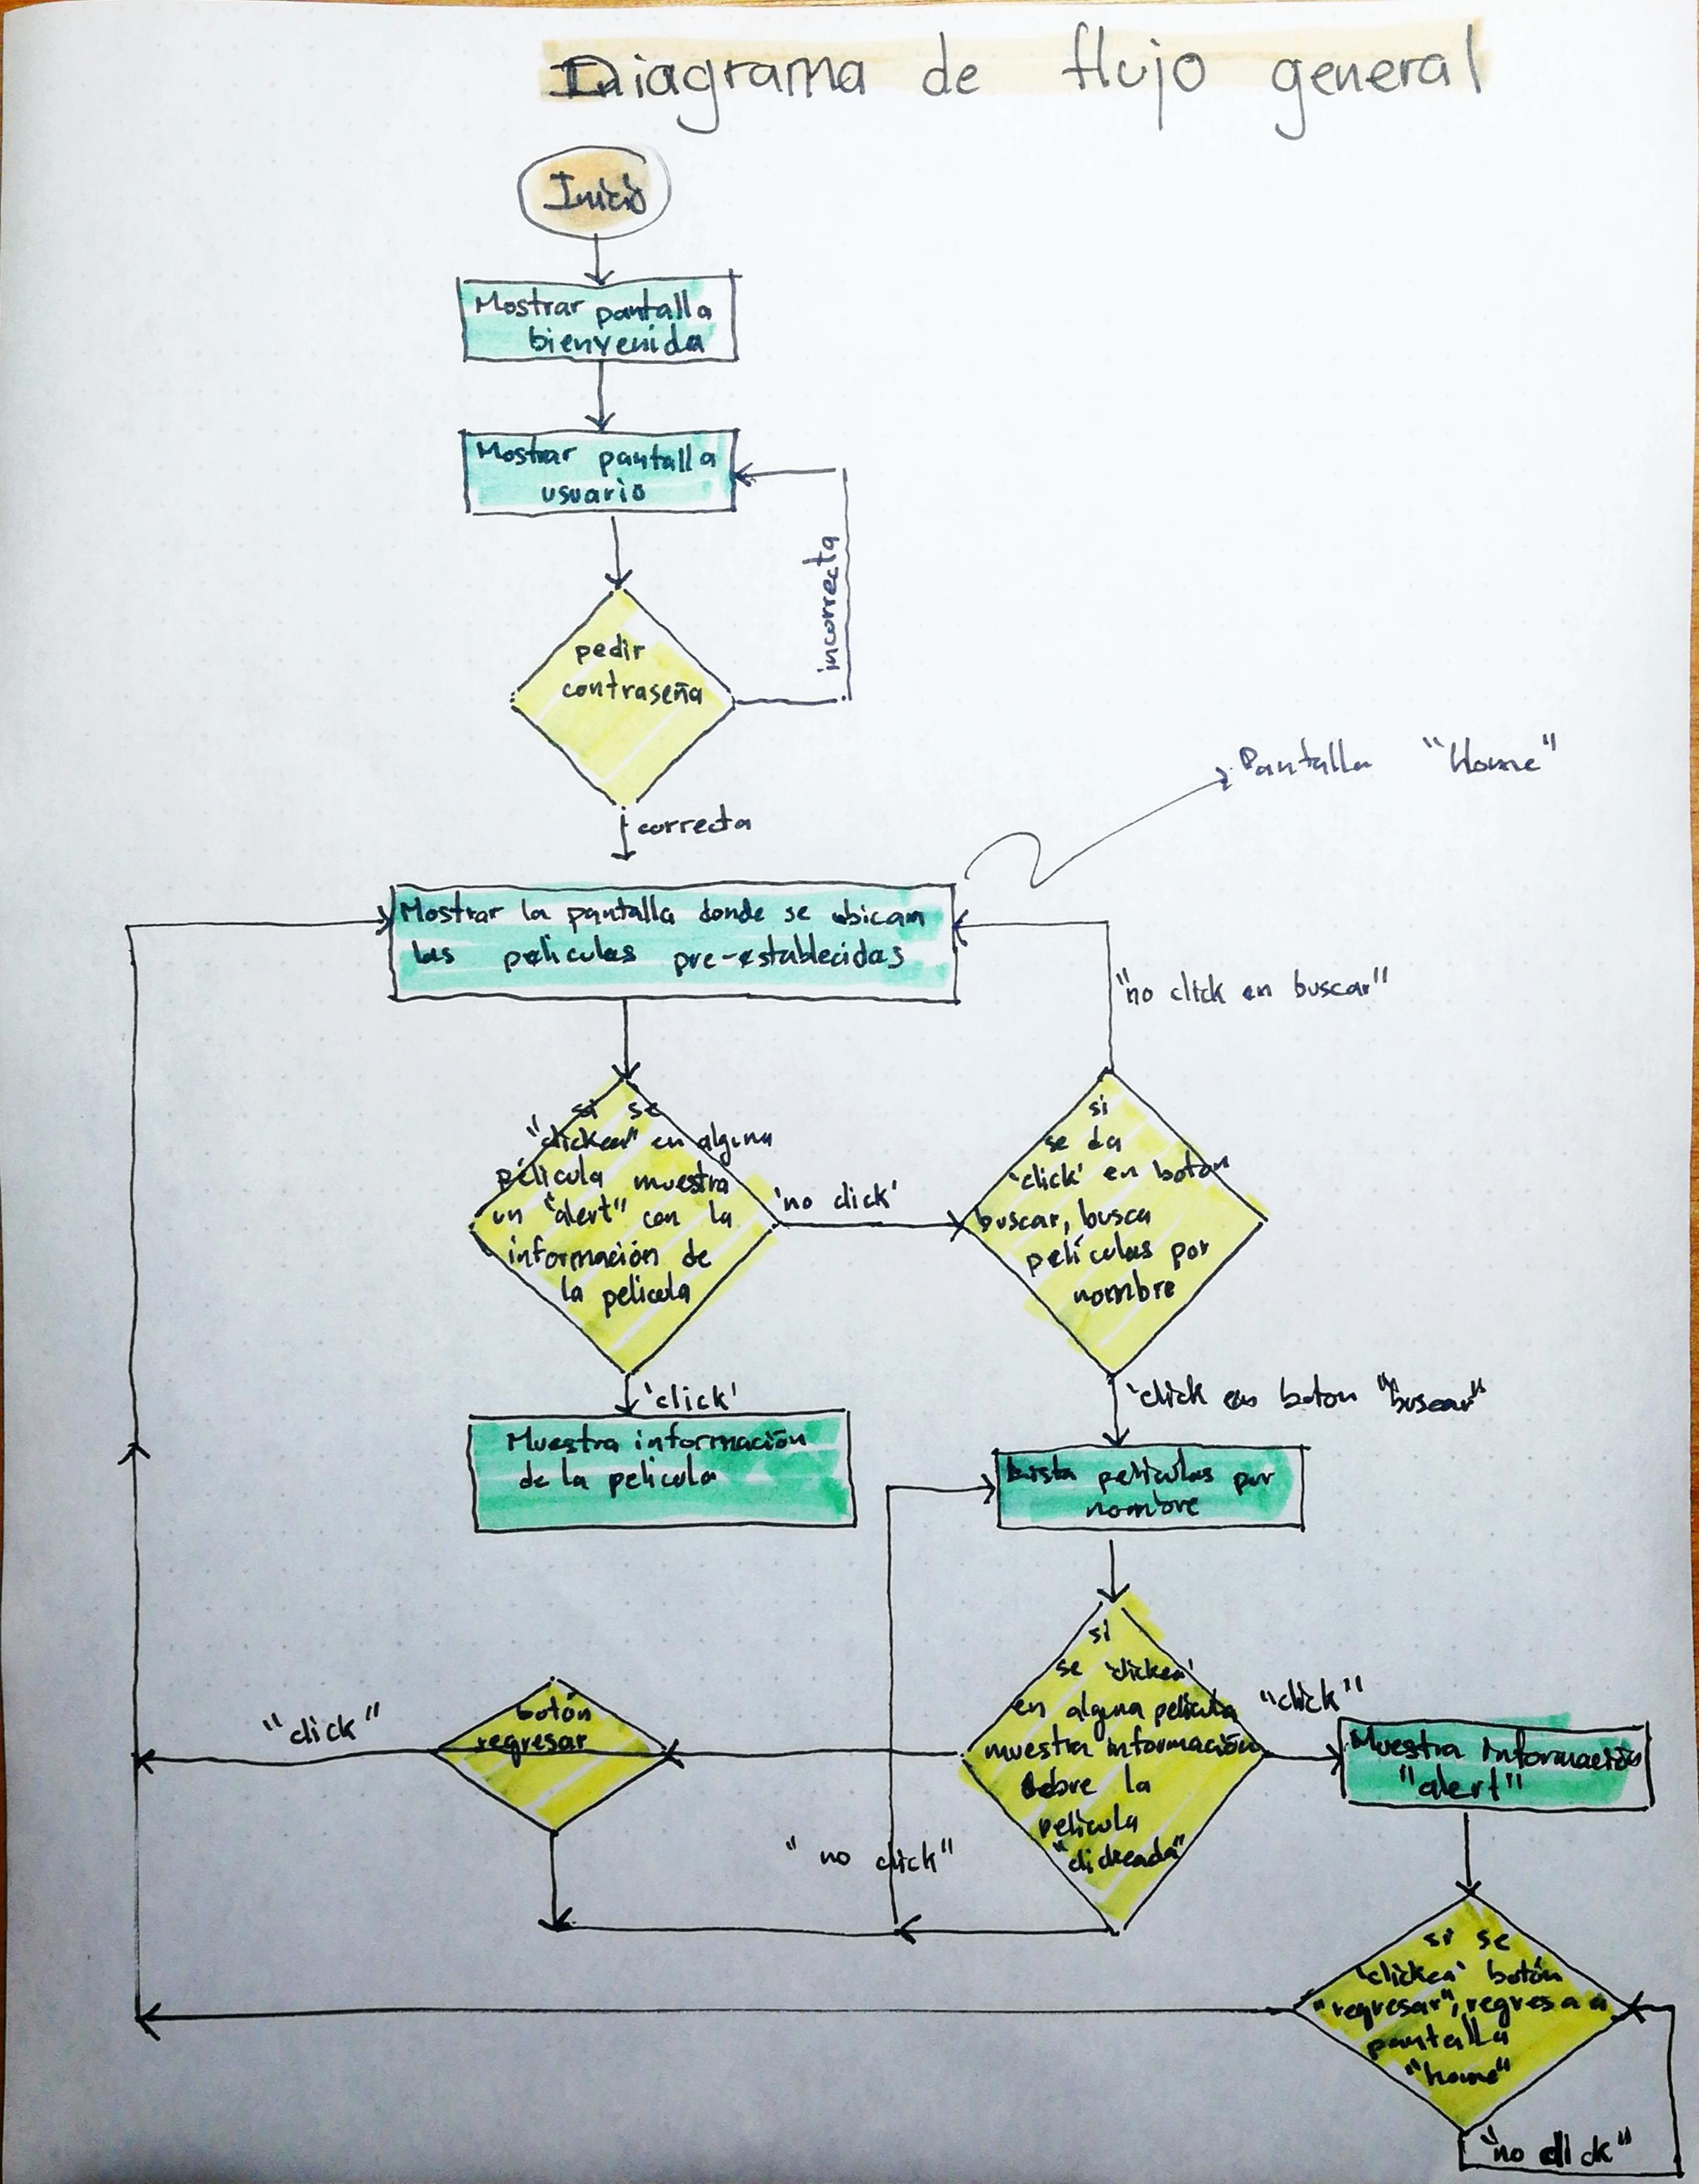 Diagrama de flujo general
Inicio
Mostrar pantalla
bienvenida
Mostrar pantalla
usuario
incorrecta
pedir
contraseña
correcta
Pantalla "Home"
Mostrar la pantalla donde se ubican
las peliculas pre-establecidas
"no click en buscar"
si se
"clickea" en alguna
película muestra
un "alert" con la
información de
la pelicula
'no click'
si
se da
'click' en botón
buscar, busca
películas por
nombre
'click'
'click en boton "buscar"
Muestra información
de la pelicula
Lista peliculas por
nombre
si
se 'clickea'
en alguna pelicula
muestra información
sobre la
pelicula
"clickeada"
"click"
Muestra información
"alert"
botón
regresar
"click"
"no click"
si se
'clickea' botón
"regresar", regresa a
pantalla
"home"
"no click"